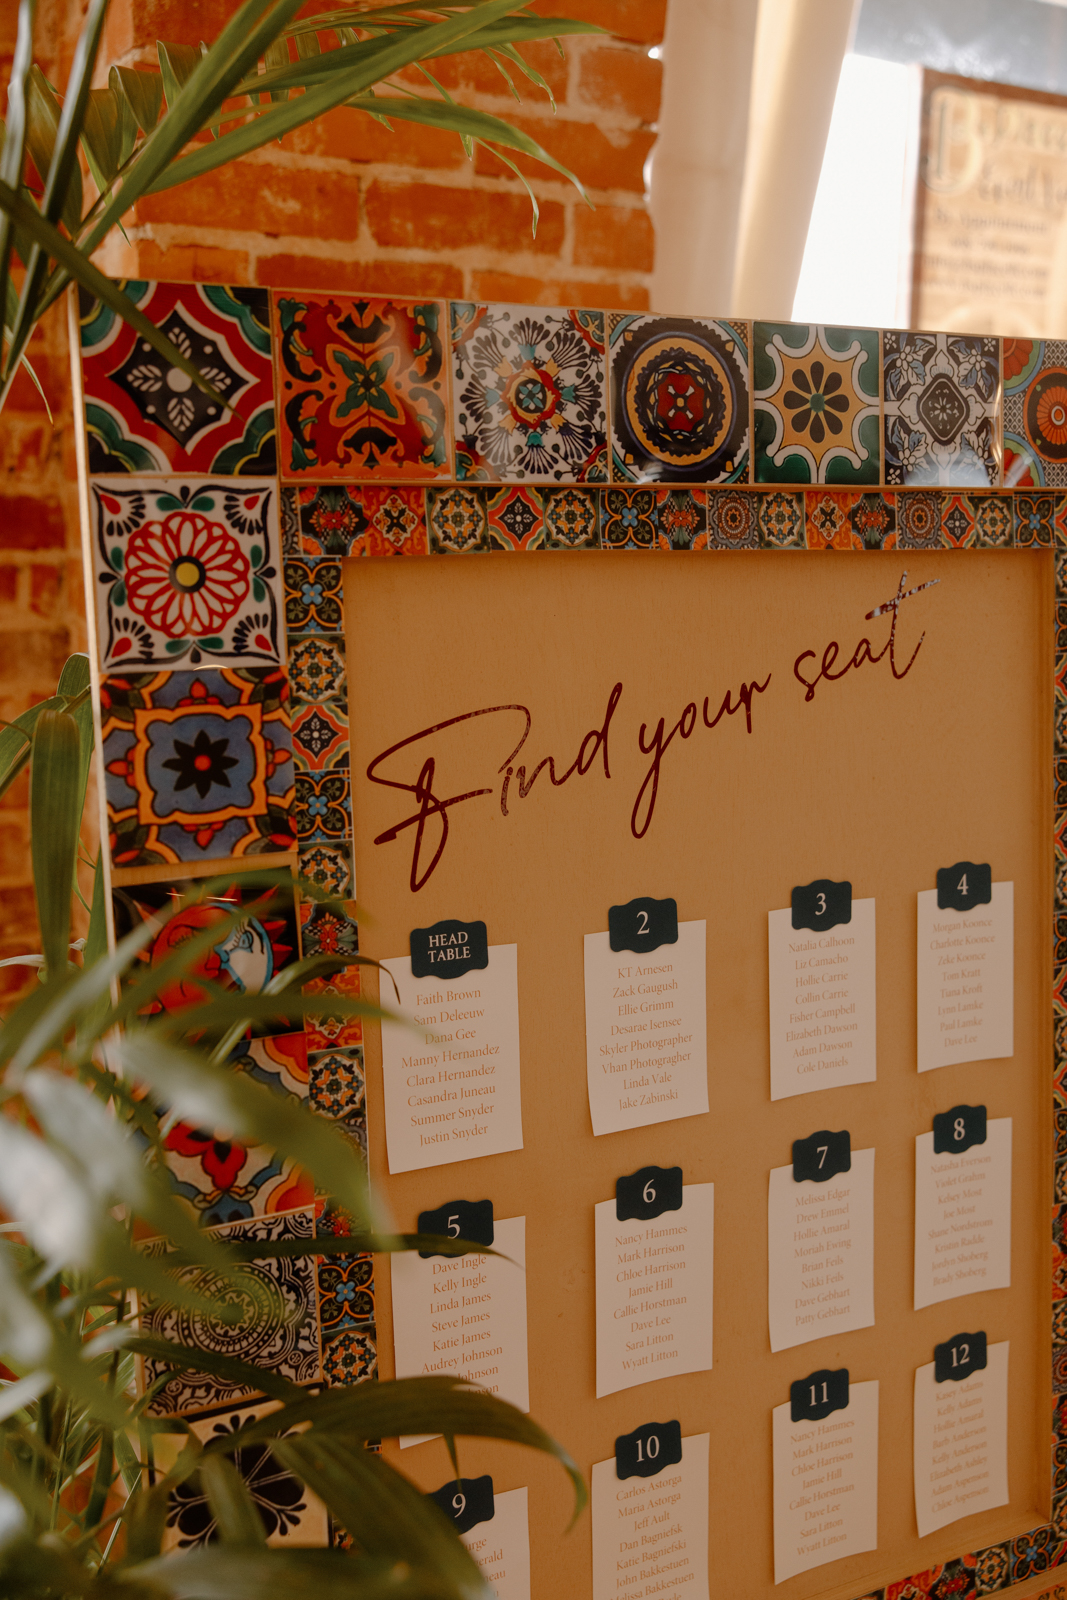 Find your seat
HEAD
TABLE
Faith Brown
Sam Deleeuw
Dana Gee
Manny Hernandez
Clara Hernandez
Casandra Juneau
Summer Snyder
Justin Snyder
2
KT Arnesen
Zack Gaugush
Ellie Grimm
Desarae Isensee
Skyler Photographer
Vhan Photogragher
Linda Vale
Jake Zabinski
3
Natalia Calhoon
Liz Camacho
Hollie Carrie
Collin Carrie
Fisher Campbell
Elizabeth Dawson
Adam Dawson
Cole Daniels
4
Morgan Koonce
Charlotte Koonce
Zeke Koonce
Tom Kratt
Tiana Kroft
Lynn Lamke
Paul Lamke
Dave Lee
5
Dave Ingle
Kelly Ingle
Linda James
Steve James
Katie James
Audrey Johnson
Johnson
6
Nancy Hammes
Mark Harrison
Chloe Harrison
Jamie Hill
Callie Horstman
Dave Lee
Sara Litton
Wyatt Litton
7
Melissa Edgar
Drew Emmel
Hollie Amaral
Moriah Ewing
Brian Feils
Nikki Feils
Dave Gebhart
Patty Gebhart
8
Natasha Everson
Violet Grahm
Kelsey Most
Joe Most
Shane Nordstrum
Kristin Radde
Jordyn Shoberg
Brady Shoberg
9
10
Carlos Astorga
Maria Astorga
Jeff Ault
Dan Bagniefsk
Katie Bagniefski
John Bakkestuen
Melissa Bakkestuen
11
Nancy Hammes
Mark Harrison
Chloe Harrison
Jamie Hill
Callie Horstman
Dave Lee
Sara Litton
Wyatt Litton
12
Kasey Adams
Kelly Adams
Hollie Amaral
Barb Anderson
Kelly Anderson
Elizabeth Ashley
Adam Asperson
Chloe Asperson